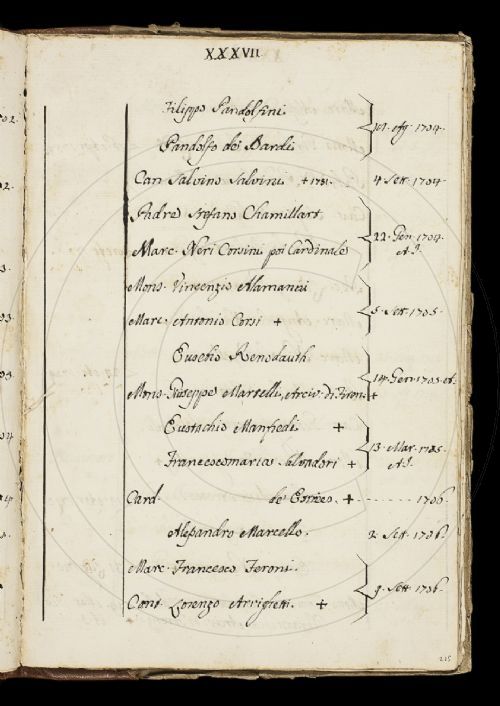 XXXVII
Filippo Pandolfini
Pandolfo de' Bardi } 21. Ag. 1704.
Can. Salvino Salvini + 1751. 4 Sett. 1704
Padre Stefano Chamillart
Marc. Neri Corsini poi Cardinale } 22. Gen. 1704. A.I.
Mons. Vincenzio Alamanni
Marc. Antonio Corsi + } 5. Sett. 1705.
Eusebio Renodauth
Mons. Giuseppe Martelli, Arciv. di Firen. + } 14. Gen. 1705. A.I.
Eustachio Manfredi +
Francescomaria Salvadori + } 13. Mar. 1705. A.I.
Card. de + 1706
Alessandro Marcello. 2. Sett. 1706.
Marc. Francesco Feroni.
Cont. Lorenzo Arrighetti. + } 9. Sett. 1706.
215